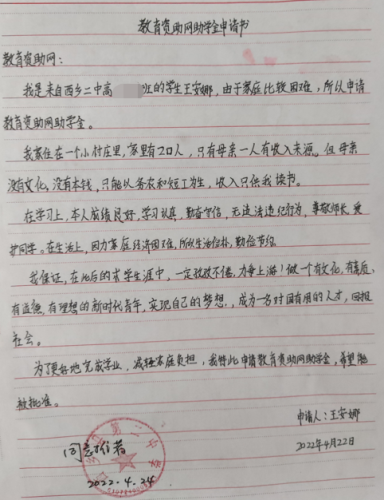 教育资助网助学金申请书
教育资助网:
我是来自西乡二中高 班的学生王安娜,由于家庭比较困难,所以申请
教育资助网助学金。
我家住在一个小村庄里,家里有2口人,只有母亲一人有收入来源。但母亲
没有文化,没有本钱,只能从务农和短工为生,收入只供我读书。
在学习上,本人成绩良好,学习认真,勤奋守信,无违法违纪行为,尊敬师长,爱
护同学。在生活上,因为家庭经济困难,所以生活俭朴,勤俭节约。
我保证,在以后的求学生涯中,一定孜孜不倦,力争上游!做一个有文化,有
有道德,有理想的新时代青年,实现自己的梦想,成为一名对国有用的人才,回报
社会。
为了更好地完成学业,减轻家庭负担,我特此申请教育资助网助学金,希望能
被批准。
申请人:王安娜
2022年4月22日
同意推荐
2022.4.24